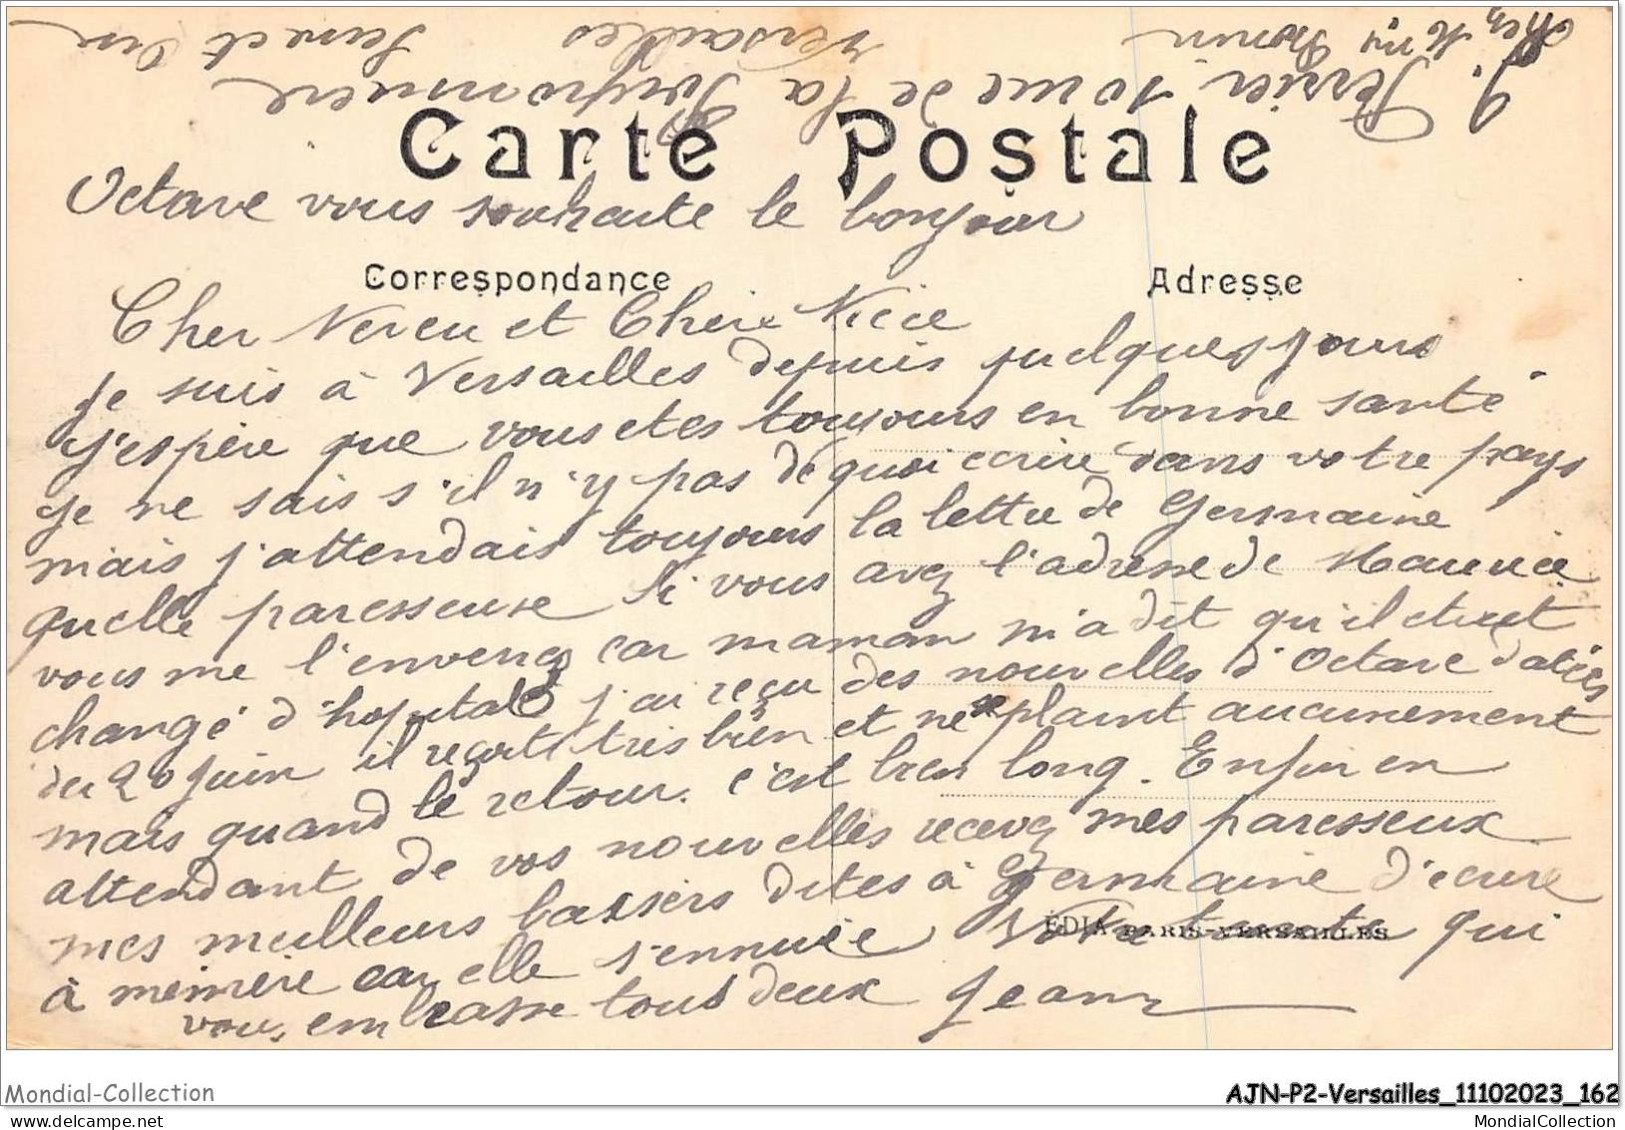 Perrier 10 rue de la
Versailles Seine et Oise
Carte Postale
Octave vous souhaite le bonjour
Correspondance
Adresse
Cher Neveu et Chere Niece
je suis à Versailles depuis quelques jours
j'espère que vous etes toujours en bonne santé
je ne sais s'il n'y pas de quoi ecrire dans votre pays
mais j'attendais toujours la lettre de Germaine
quelle paresseuse si vous avez l'adresse de Maurice
vous me l'enverez car maman m'a dit qu'il etait
changé d'hopital j'ai reçu des nouvelles d'Octave datées
du 20 juin il reçoit tres bien et ne se plaint aucunement
mais quand le retour. c'est bien long. Enfin en
attendant de vos nouvelles recevez mes paresseux
mes meilleurs baisers dites à Germaine d'ecrire
à mémère car elle s'ennuie Votre tante qui
EDIA PARIS-VERSAILLES
vous embrasse tous deux Jeanne
Mondial-Collection
AJN-P2-Versailles_11102023_162
MondialCollection